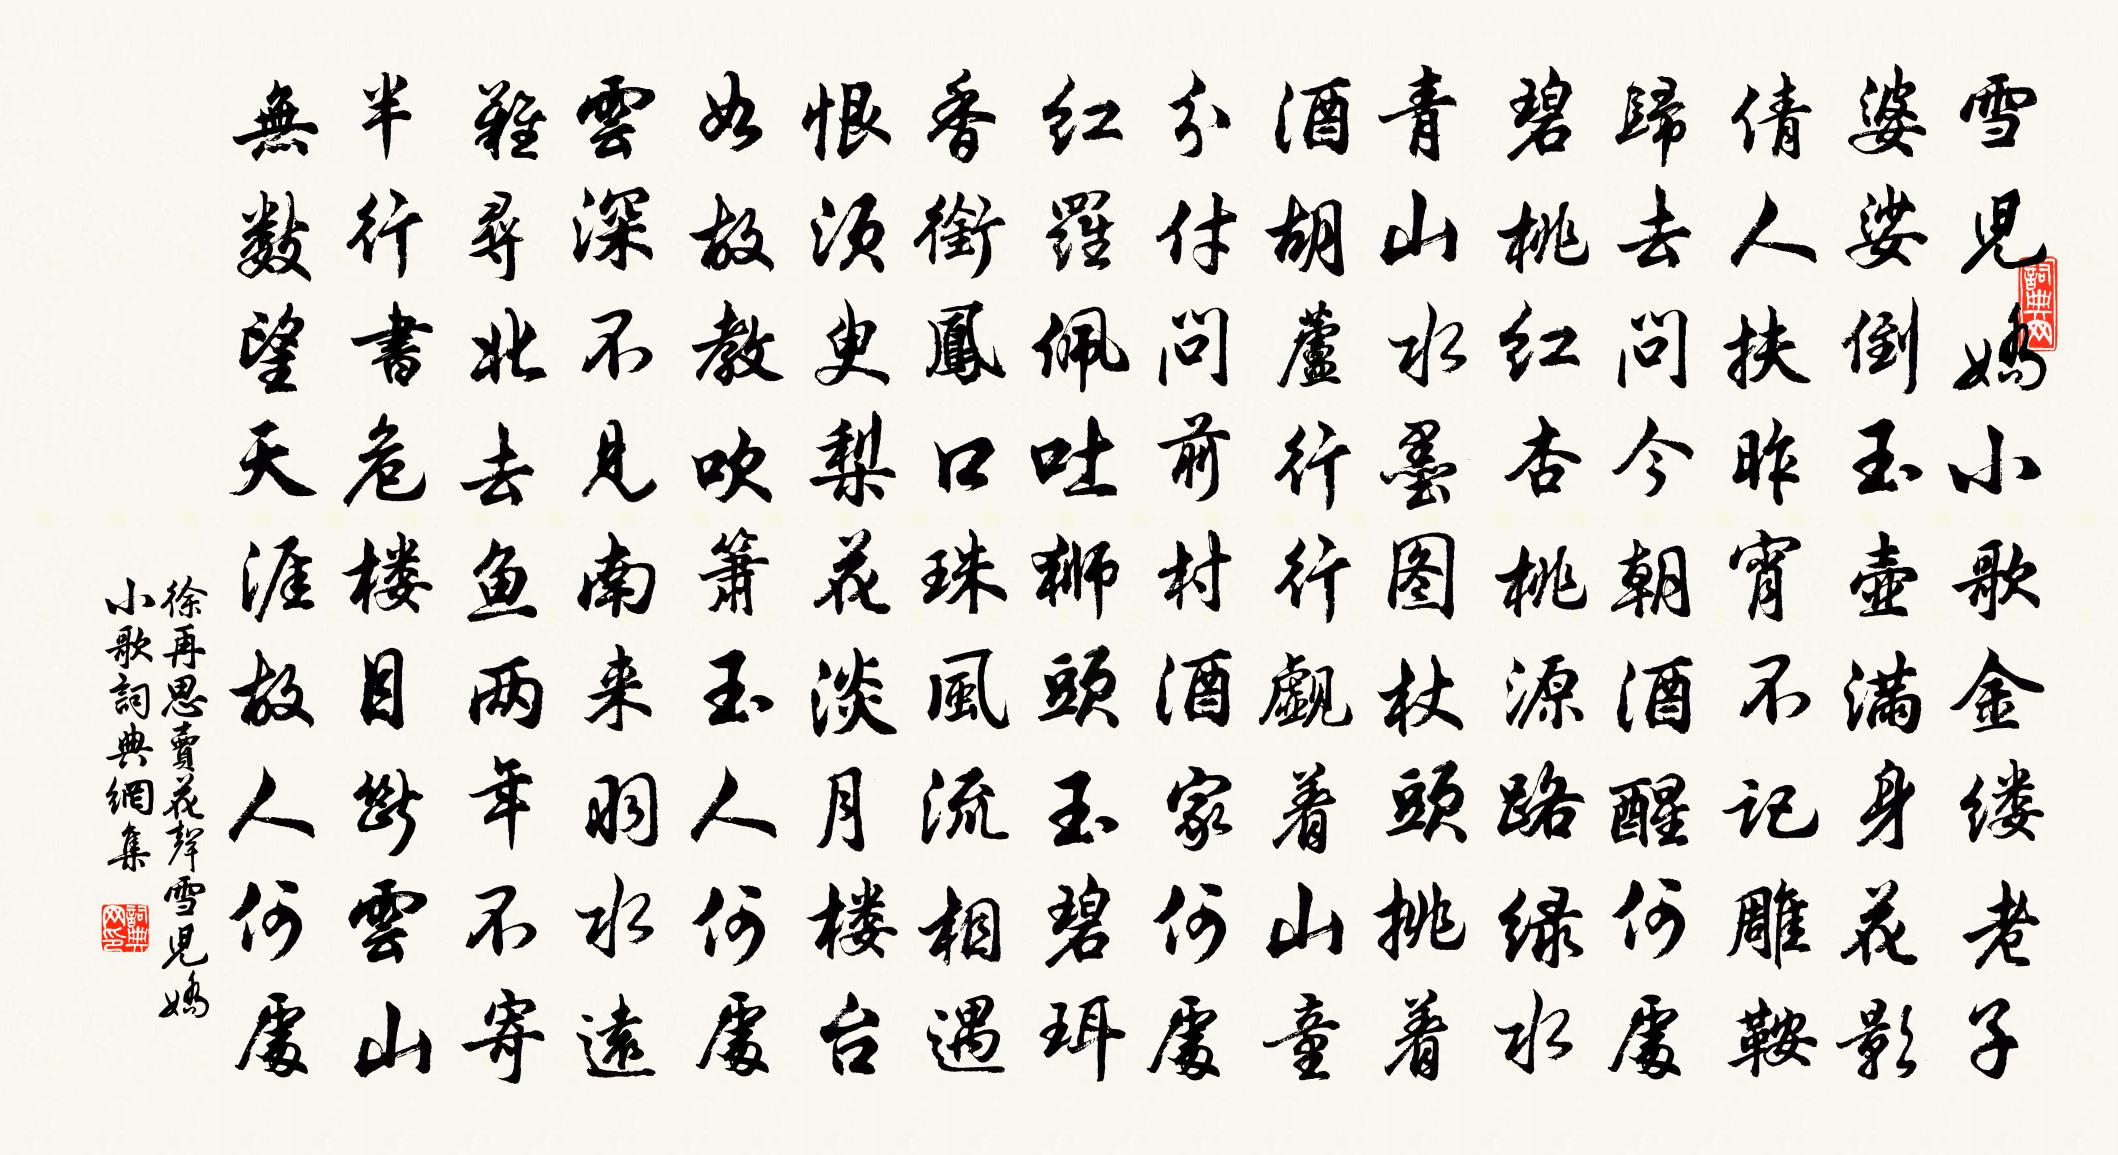 雪児嬌小歌金缕老子
婆娑倒玉壷满身花影
倩人扶昨宵不记雕鞍
歸去问今朝酒醒何處
碧桃红杏桃源路绿水
青山水墨图杖頭挑着
酒胡蘆行行觑着山童
分付问前村酒家何處
红羅佩吐狮頭玉碧珥
香銜鳳口珠風流相遇
恨须臾梨花淡月楼台
如故教吹箫玉人何處
雲深不见南来羽水遠
難尋北去鱼两年不寄
半行書危楼目斷雲山
無数望天涯故人何處
徐再思賣花聲雪児嬌
小歌詞典網集
詞典网
詞典网印